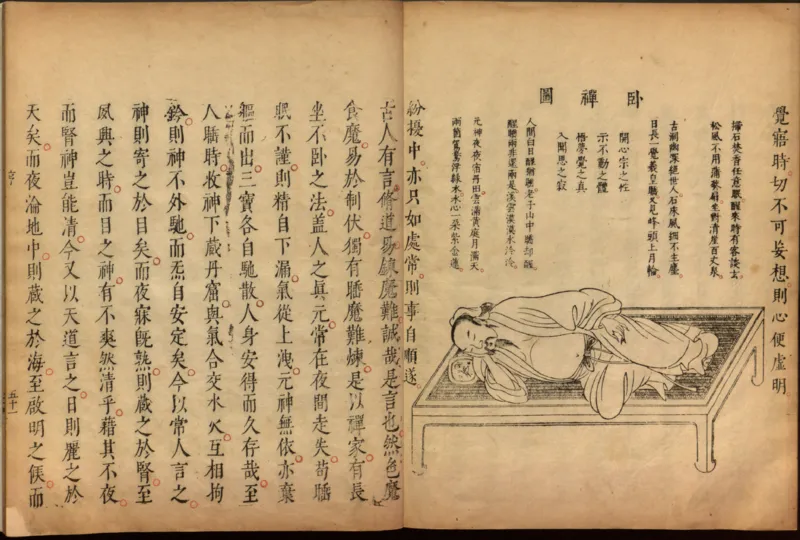 覺寤時切不可妄想則心便虛明
卧禪圖
掃石焚香任意眠醒來時有客談玄
松風不用蒲葵扇坐對清崖百丈泉
古洞幽深絕世人石床風細不生塵
日長一覺羲皇睡又見峰頭上月輪
開心宗之性
示不動之體
悟夢覺之真
入聞思之寂
人間白日醒猶睡老子山中睡却醒
醒睡兩非還兩是溪雲漠漠水泠泠
元神夜夜宿丹田雲滿黃庭月滿天
兩箇鴛鴦浮綠水水心一朵紫金蓮
紛擾中亦只如處常則事自順遂
古人有言修道易鍊魔難誠哉是言也然色魔
食魔易於制伏獨有睡魔難煉是以禪家有長
坐不卧之法盖人之真元常在夜間走失苟睡
眠不謹則精自下漏氣從上洩元神無依亦棄
軀而出三寶各自馳散人身安得而久存哉至
人睡時收神下藏丹竅與氣合交水火互相拘
鈐則神不外馳而炁自安定矣今以常人言之
神則寄之於目矣而夜寐旣熟則藏之於腎至
夙興之時而目之神有不爽然清乎藉其不夜
而腎神豈能清今又以天道言之日則麗之於
天矣而夜淪地中則藏之於海至啟明之候而
五十一